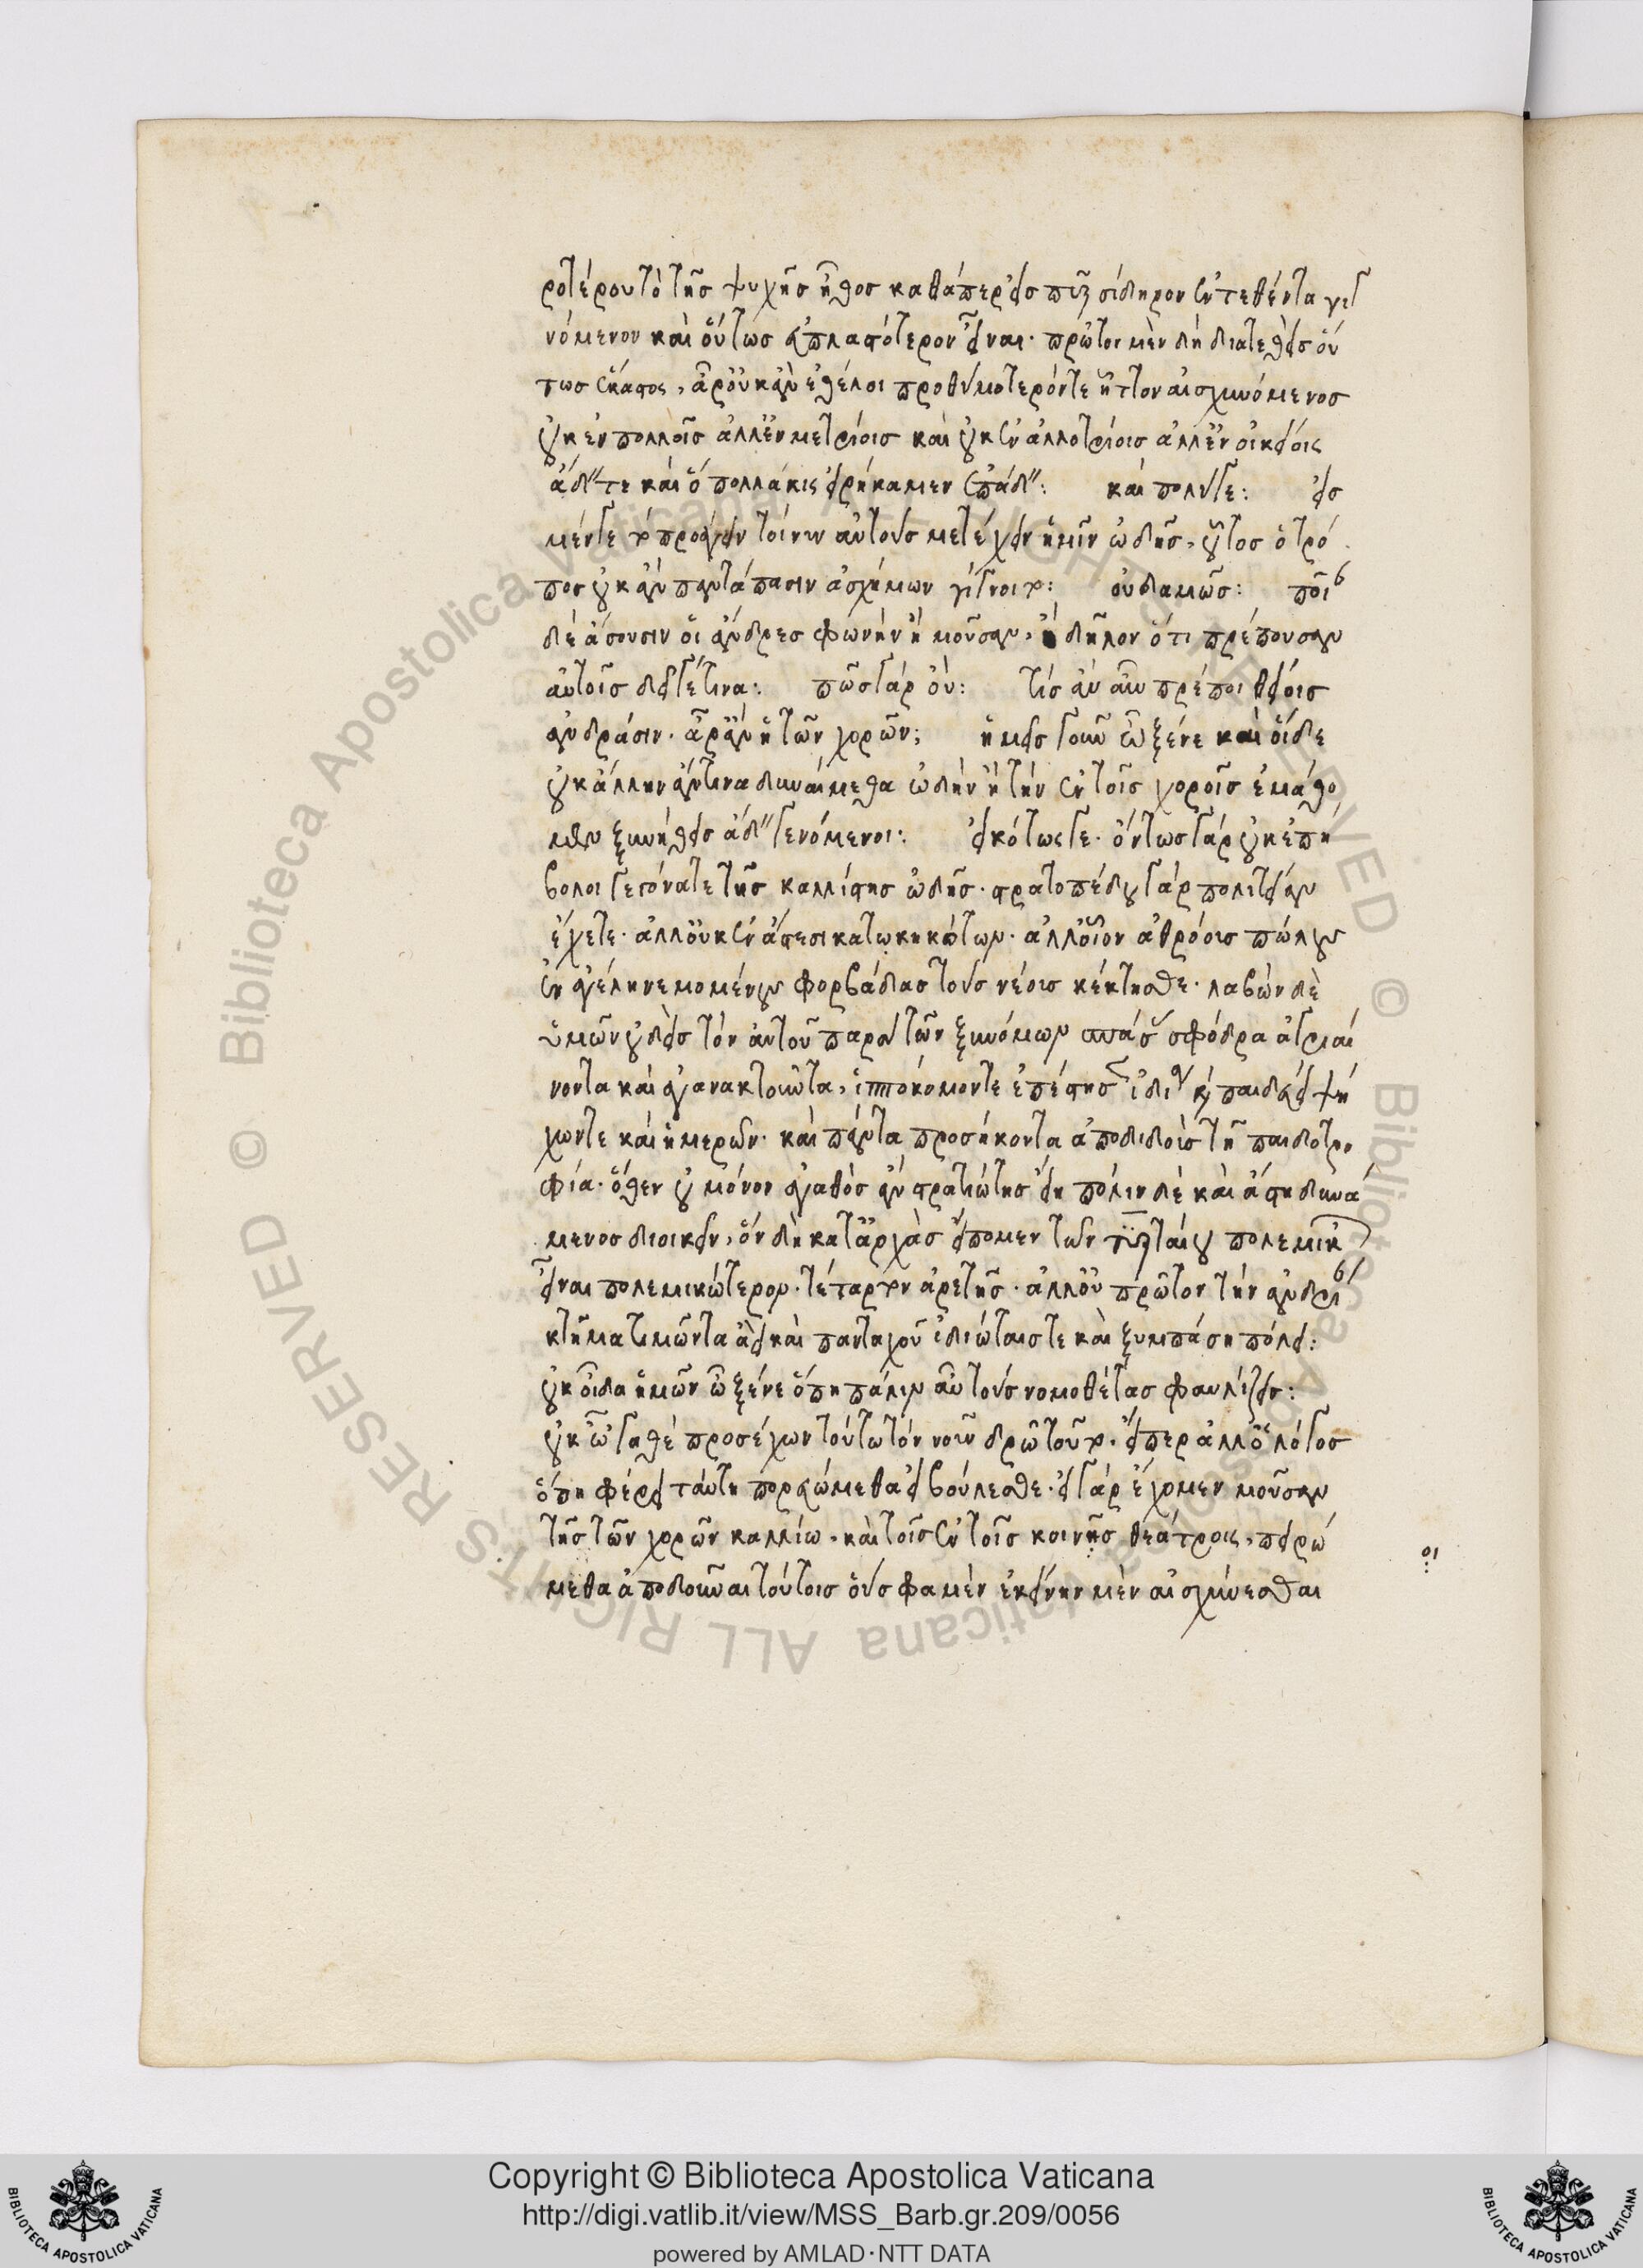 ροτέρου τὸ τῆς ψυχῆς ἦθος καθάπερ εἰς πῦρ σίδηρον ἐντεθέντα γιγ
νόμενον καὶ οὕτως εὐπλαστότερον εἶναι· πρῶτον μὲν δὴ διατεθεὶς οὕ
τως ἕκαστος, ἆρ' οὐκ ἂν ἐθέλοι προθυμότερόν τε ἧττον αἰσχυνόμενος
οὐκ ἐν πολλοῖς ἀλλ' ἐν μετρίοις καὶ οὐκ ἐν ἀλλοτρίοις ἀλλ' ἐν οἰκείοις
ᾄδειν τε καὶ ὃ πολλάκις εἰρήκαμεν ἐπᾴδειν: καὶ πολύ γε: εἰς
μέν γε τὸ προάγειν τοίνυν αὐτοὺς μετέχειν ἡμῖν ᾠδῆς, οὗτος ὁ τρό
πος οὐκ ἂν παντάπασιν ἀσχήμων γίγνοιτο: οὐδαμῶς: ποίαν
δὲ ᾄσουσιν οἱ ἄνδρες φωνὴν ἢ μοῦσαν, ἢ δῆλον ὅτι πρέπουσαν
αὐτοῖς δεῖ γέ τινα: πῶς γὰρ οὔ: τίς ἂν οὖν πρέποι θείοις
ἀνδράσιν· ἆρ' ἂν ἡ τῶν χορῶν; ἡμεῖς γοῦν ὦ ξένε καὶ οἵδε
οὐκ ἄλλην ἄν τινα δυναίμεθα ᾠδὴν ἢ τὴν ἐν τοῖς χοροῖς ἐμάθο
μεν ξυνήθεις ᾄδειν γενόμενοι: εἰκότως γε· ὄντως γὰρ οὐκ ἐπή
βολοι γεγόνατε τῆς καλλίστης ᾠδῆς· στρατοπέδου γὰρ πολιτείαν
ἔχετε· ἀλλ' οὐκ ἐν ἄστεσι κατῳκηκότων· ἀλλ' οἷον ἀθρόους πώλους
ἐν ἀγέλῃ νεμομένους φορβάδας τοὺς νέους κέκτησθε· λαβὼν δὲ
ὑμῶν οὐδεὶς τὸν αὑτοῦ παρὰ τῶν ξυννόμων σπάσας σφόδρα ἀγριαί
νοντα καὶ ἀγανακτοῦντα, ἱπποκόμον τε ἐπέστησεν ἰδίᾳ καὶ παιδεύει ψή
χων τε καὶ ἡμερῶν· καὶ πάντα προσήκοντα ἀποδιδοὺς τῇ παιδοτρο
φίᾳ· ὅθεν οὐ μόνον ἀγαθὸς ἂν στρατιώτης εἴη πόλιν δὲ καὶ ἄστη δυνά
μενος διοικεῖν, ὃν δὴ κατ' ἀρχὰς εἴπομεν τῶν τυρταίου πολεμικῶν
εἶναι πολεμικώτερον· τέταρτον ἀρετῆς· ἀλλ' οὐ πρῶτον τὴν ἀνδρείαν
κτῆμα τιμῶντα ἀεὶ καὶ πανταχοῦ ἰδιώταις τε καὶ ξυμπάσῃ πόλει:
οὐκ οἶδα ἡμῶν ὦ ξένε ὅπῃ πάλιν αὖ τοὺς νομοθέτας φαυλίζεις:
οὐκ ὦγαθὲ προσέχων τούτῳ τὸν νοῦν δρῶ τοῦτο, εἴπερ ἀλλ' ὁ λόγος
ὅπῃ φέρει ταύτῃ πορευώμεθα εἰ βούλεσθε· εἰ γὰρ ἔχομεν μοῦσαν
τῆς τῶν χορῶν καλλίω, καὶ τοῖς ἐν τοῖς κοινῆς θεάτροις, πειρώ
μεθα ἀποδοῦναι τούτοις οὕς φαμεν ἐκείνην μὲν αἰσχύνεσθαι
οι
Copyright © Biblioteca Apostolica Vaticana
http://digi.vatlib.it/view/MSS_Barb.gr.209/0056
powered by AMLAD·NTT DATA